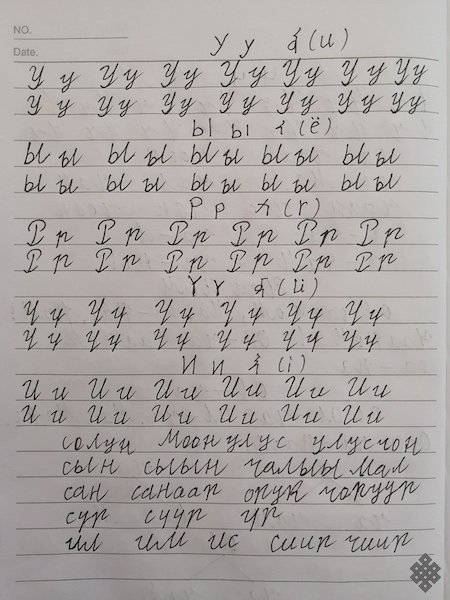 NO.
Date.
У у (u)
У у У у У у У у У у У у У у
У у У у У у У у У у У у У у
Ы ы (ё)
Ы ы Ы ы Ы ы Ы ы Ы ы
Ы ы Ы ы Ы ы Ы ы Ы ы
Р р (r)
Р р Р р Р р Р р Р р Р р
Р р Р р Р р Р р Р р Р р
Ү ү (ü)
Ү ү Ү ү Ү ү Ү ү Ү ү Ү ү
Ү ү Ү ү Ү ү Ү ү Ү ү Ү ү
И и (i)
И и И и И и И и И и И и
И и И и И и И и И и И и
солун Моон улус улусчон
сын сыын чалыы мал
сан санаар орук чоруур
сүр сүүр үр
ил им ис сиир чиир